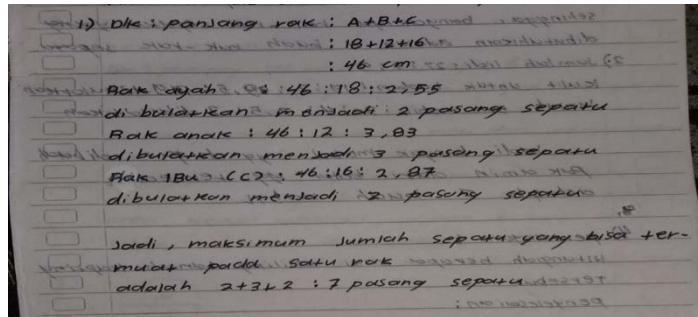 1) Dik : panjang rak : A+B+C
: 18+12+16
: 46 cm
Rak ayah : 46 : 18 : 2,55
di bulatkan menjadi 2 pasang sepatu
Rak anak : 46 : 12 : 3,83
dibulatkan menjadi 3 pasang sepatu
Rak IBu (C) : 46 : 16 : 2,87
dibulatkan menjadi 2 pasang sepatu
Jadi, maksimum Jumlah sepatu yang bisa ter-
muat pada satu rak
adalah 2+3+2 : 7 pasang sepatu